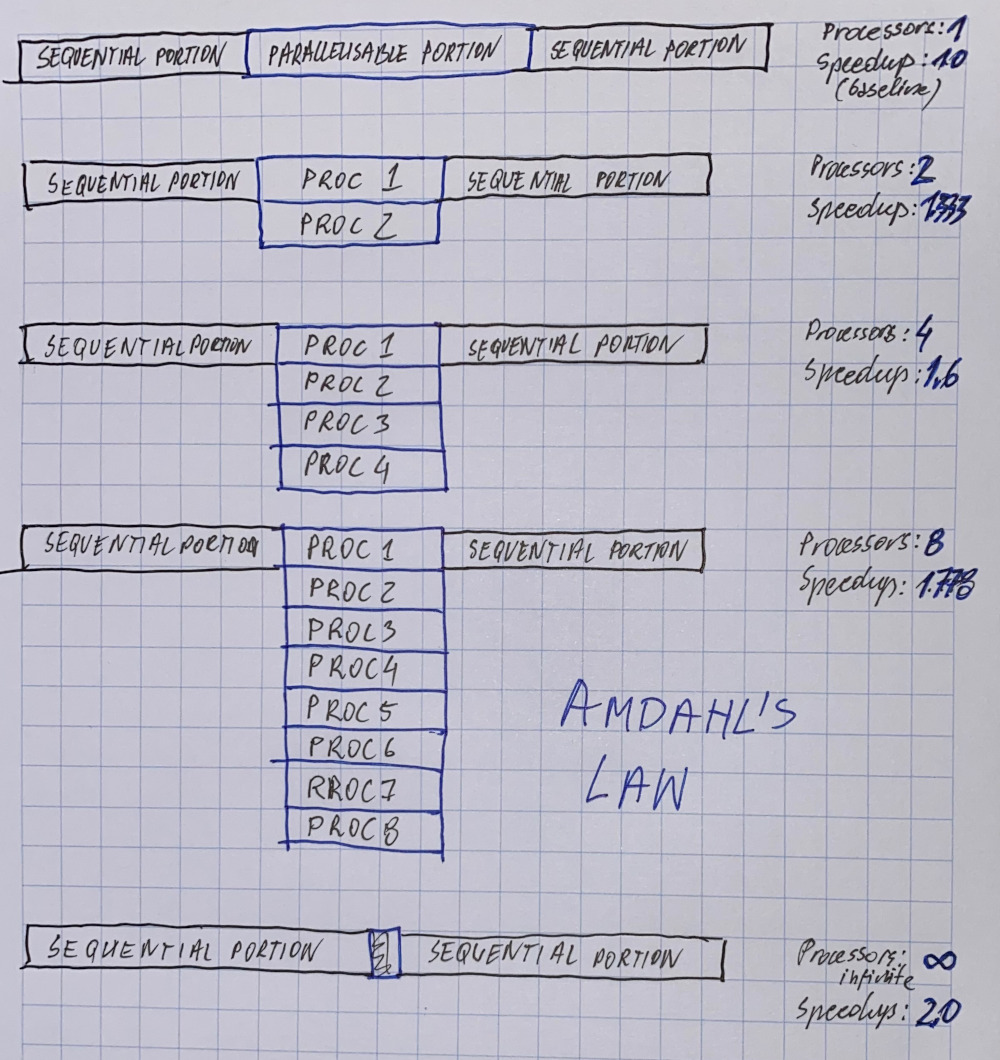 SEQUENTIAL PORTION PARALLELISABLE PORTION SEQUENTIAL PORTION
Processors: 1
Speedup: 1.0
(baseline)
SEQUENTIAL PORTION PROC 1 SEQUENTIAL PORTION
PROC 2
Processors: 2
Speedup: 1.333
SEQUENTIAL PORTION PROC 1 SEQUENTIAL PORTION
PROC 2
PROC 3
PROC 4
Processors: 4
Speedup: 1.6
SEQUENTIAL PORTION PROC 1 SEQUENTIAL PORTION
PROC 2
PROC 3
PROC 4
PROC 5
PROC 6
RROC 7
PROC 8
Processors: 8
Speedup: 1.778
AMDAHL'S
LAW
SEQUENTIAL PORTION SEQUENTIAL PORTION
Processors: ∞
infinite
Speedups: 2,0